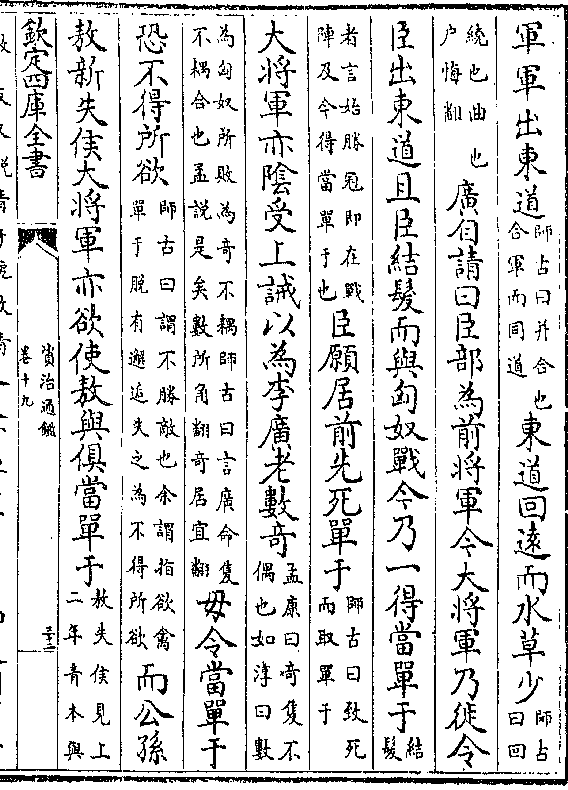 軍軍出東道師古曰并合也合軍而同道東道回遠而水草少師古曰回
繞也曲也户悔翻廣自請曰臣部為前將軍今大將軍乃徙令
臣出東道且臣結髮而與匈奴戰今乃一得當單于結髮
者言始勝冠即在戰陣及今得當單于也臣願居前先死單于師古曰致死而取單于
大將軍亦陰受上誡以為李廣老數奇孟康曰奇隻不偶也如淳曰數
為匈奴所敗為奇不耦師古曰言廣命隻不耦合也孟說是矣數所角翻奇居宜翻毋令當單于
恐不得所欲師古曰謂不勝敵也余謂指欲禽單于脫有邂逅失之為不得所欲而公孫
敖新失侯大將軍亦欲使敖與俱當單于敖失侯見上二年青本與
欽定四庫全書
資治通鑑
卷十九